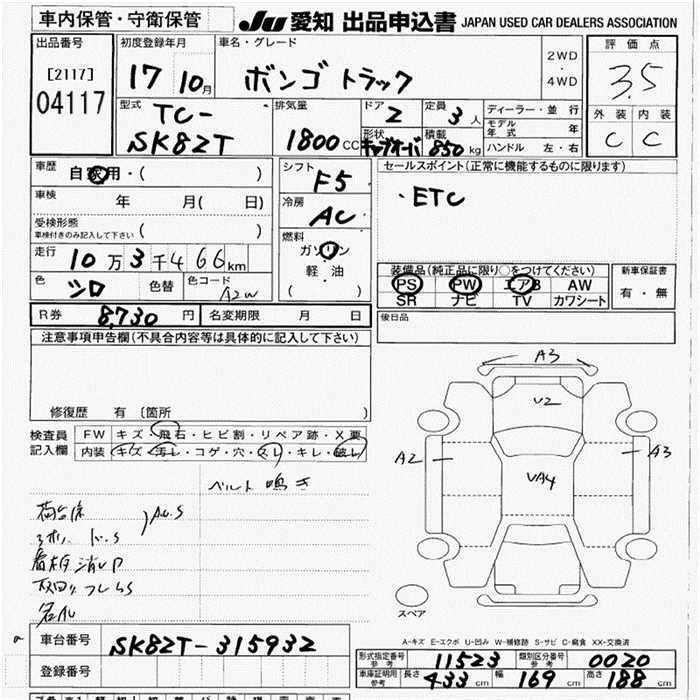 車内保管・守衛保管
JU 愛知 出品申込書 JAPAN USED CAR DEALERS ASSOCIATION
出品番号 初度登録年月 車名・グレード 評価点
[2117] 17 10月 ボンゴ トラック 2WD・4WD 3.5
04117 型式 TC-SK82T 排気量 1800CC ドア 2 定員 3人 ディーラー・並行 外装 内装
形状 キャブオーバ 積載 850kg モデル年式 年 C C
ハンドル 左・右
車歴 自家用・( ) シフト F5 セールスポイント(正常に機能するものに限ります)
車検 年 月( 日) 冷房 AC ・ETC
受検形態 ( )
車検付きのみ記入して下さい
燃料 ガソリン
軽・油
( )
走行 10万3千466km
装備品(純正品に限り○をつけてください) 新車保証書
色 シロ 色替 色コード A2W PS PW エアB AW 有・無
SR ナビ TV カワシート
R券 8,730円 名変期限 月 日 後日品
注意事項申告欄(不具合内容等は具体的に記入して下さい)
修復歴 有 〔箇所 〕
検査員 FW キズ・飛石・ヒビ割・リペア跡・X要
記入欄 内装 キズ・汚レ・コゲ・穴・スレ・キレ・破レ
ベルト鳴き
荷台
A.S
看板消し
A3
U2
A2
A3
UA4
スペア
A-キズ E-エクボ U-凹み W-補修跡 S-サビ C-腐食 XX-交換済
車台番号 SK82T-315932
登録番号
形式指定番号 参考 11523 類別区分番号 参考 0020
車庫証明用 参考 長さ 433cm 幅 169cm 高さ 188cm